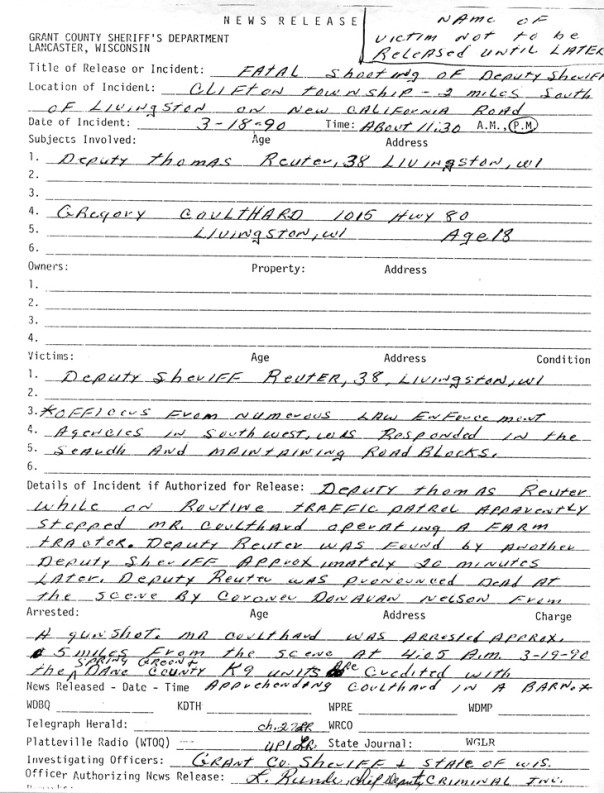 NEWS RELEASE
NAME OF
VICTIM NOT TO BE
RELEASED UNTIL LATER
GRANT COUNTY SHERIFF'S DEPARTMENT
LANCASTER, WISCONSIN
Title of Release or Incident: FATAL Shooting OF Deputy Sheriff
Location of Incident: CLIFTON TOWNSHIP - 2 MILES South
OF LIVINGSTON ON NEW CALIFORNIA ROAD
Date of Incident: 3-18-90 Time: About 11:30 A.M., P.M.
Subjects Involved: Age Address
1. Deputy Thomas Reuter, 38 LIVINGSTON, WI
2.
3.
4. GREGORY COULTHARD 1015 Hwy 80
5. LIVINGSTON, WI Age 18
6.
Owners: Property: Address
1.
2.
3.
4.
Victims: Age Address Condition
1. Deputy Sheriff Reuter, 38, LIVINGSTON, WI
2.
3. *OFFICERS FROM NUMEROUS LAW ENFORCEMENT
4. Agencies in Southwest, WIS Responded in the
5. SEARCH AND MAINTAINING ROAD BLOCKS.
6.
Details of Incident if Authorized for Release: Deputy Thomas Reuter
While on Routine TRAFFIC PATROL APPARENTLY
Stopped MR. Coulthard operating A FARM
TRACTOR. Deputy Reuter was found by another
Deputy Sheriff Approximately 20 minutes
Later. Deputy Reuter was pronounced Dead At
the scene By Coroner Donavan Nelson From
Arrested: Age Address Charge
A gunshot. MR Coulthard was ARRESTED Approx.
5 miles From the scene At 4:05 A.M. 3-19-90
the SPRING GREEN + DANE COUNTY K9 units Are Credited with
News Released - Date - Time Apprehending Coulthard in A BARN.*
WDBQ KDTH WPRE WDMP
Telegraph Herald: ch. 27 LR WRCO
Platteville Radio (WTOQ) UPI LR State Journal: WGLR
Investigating Officers: GRANT CO. Sheriff + State of WIS.
Officer Authorizing News Release: L. Runde, Chief Deputy CRIMINAL INC.